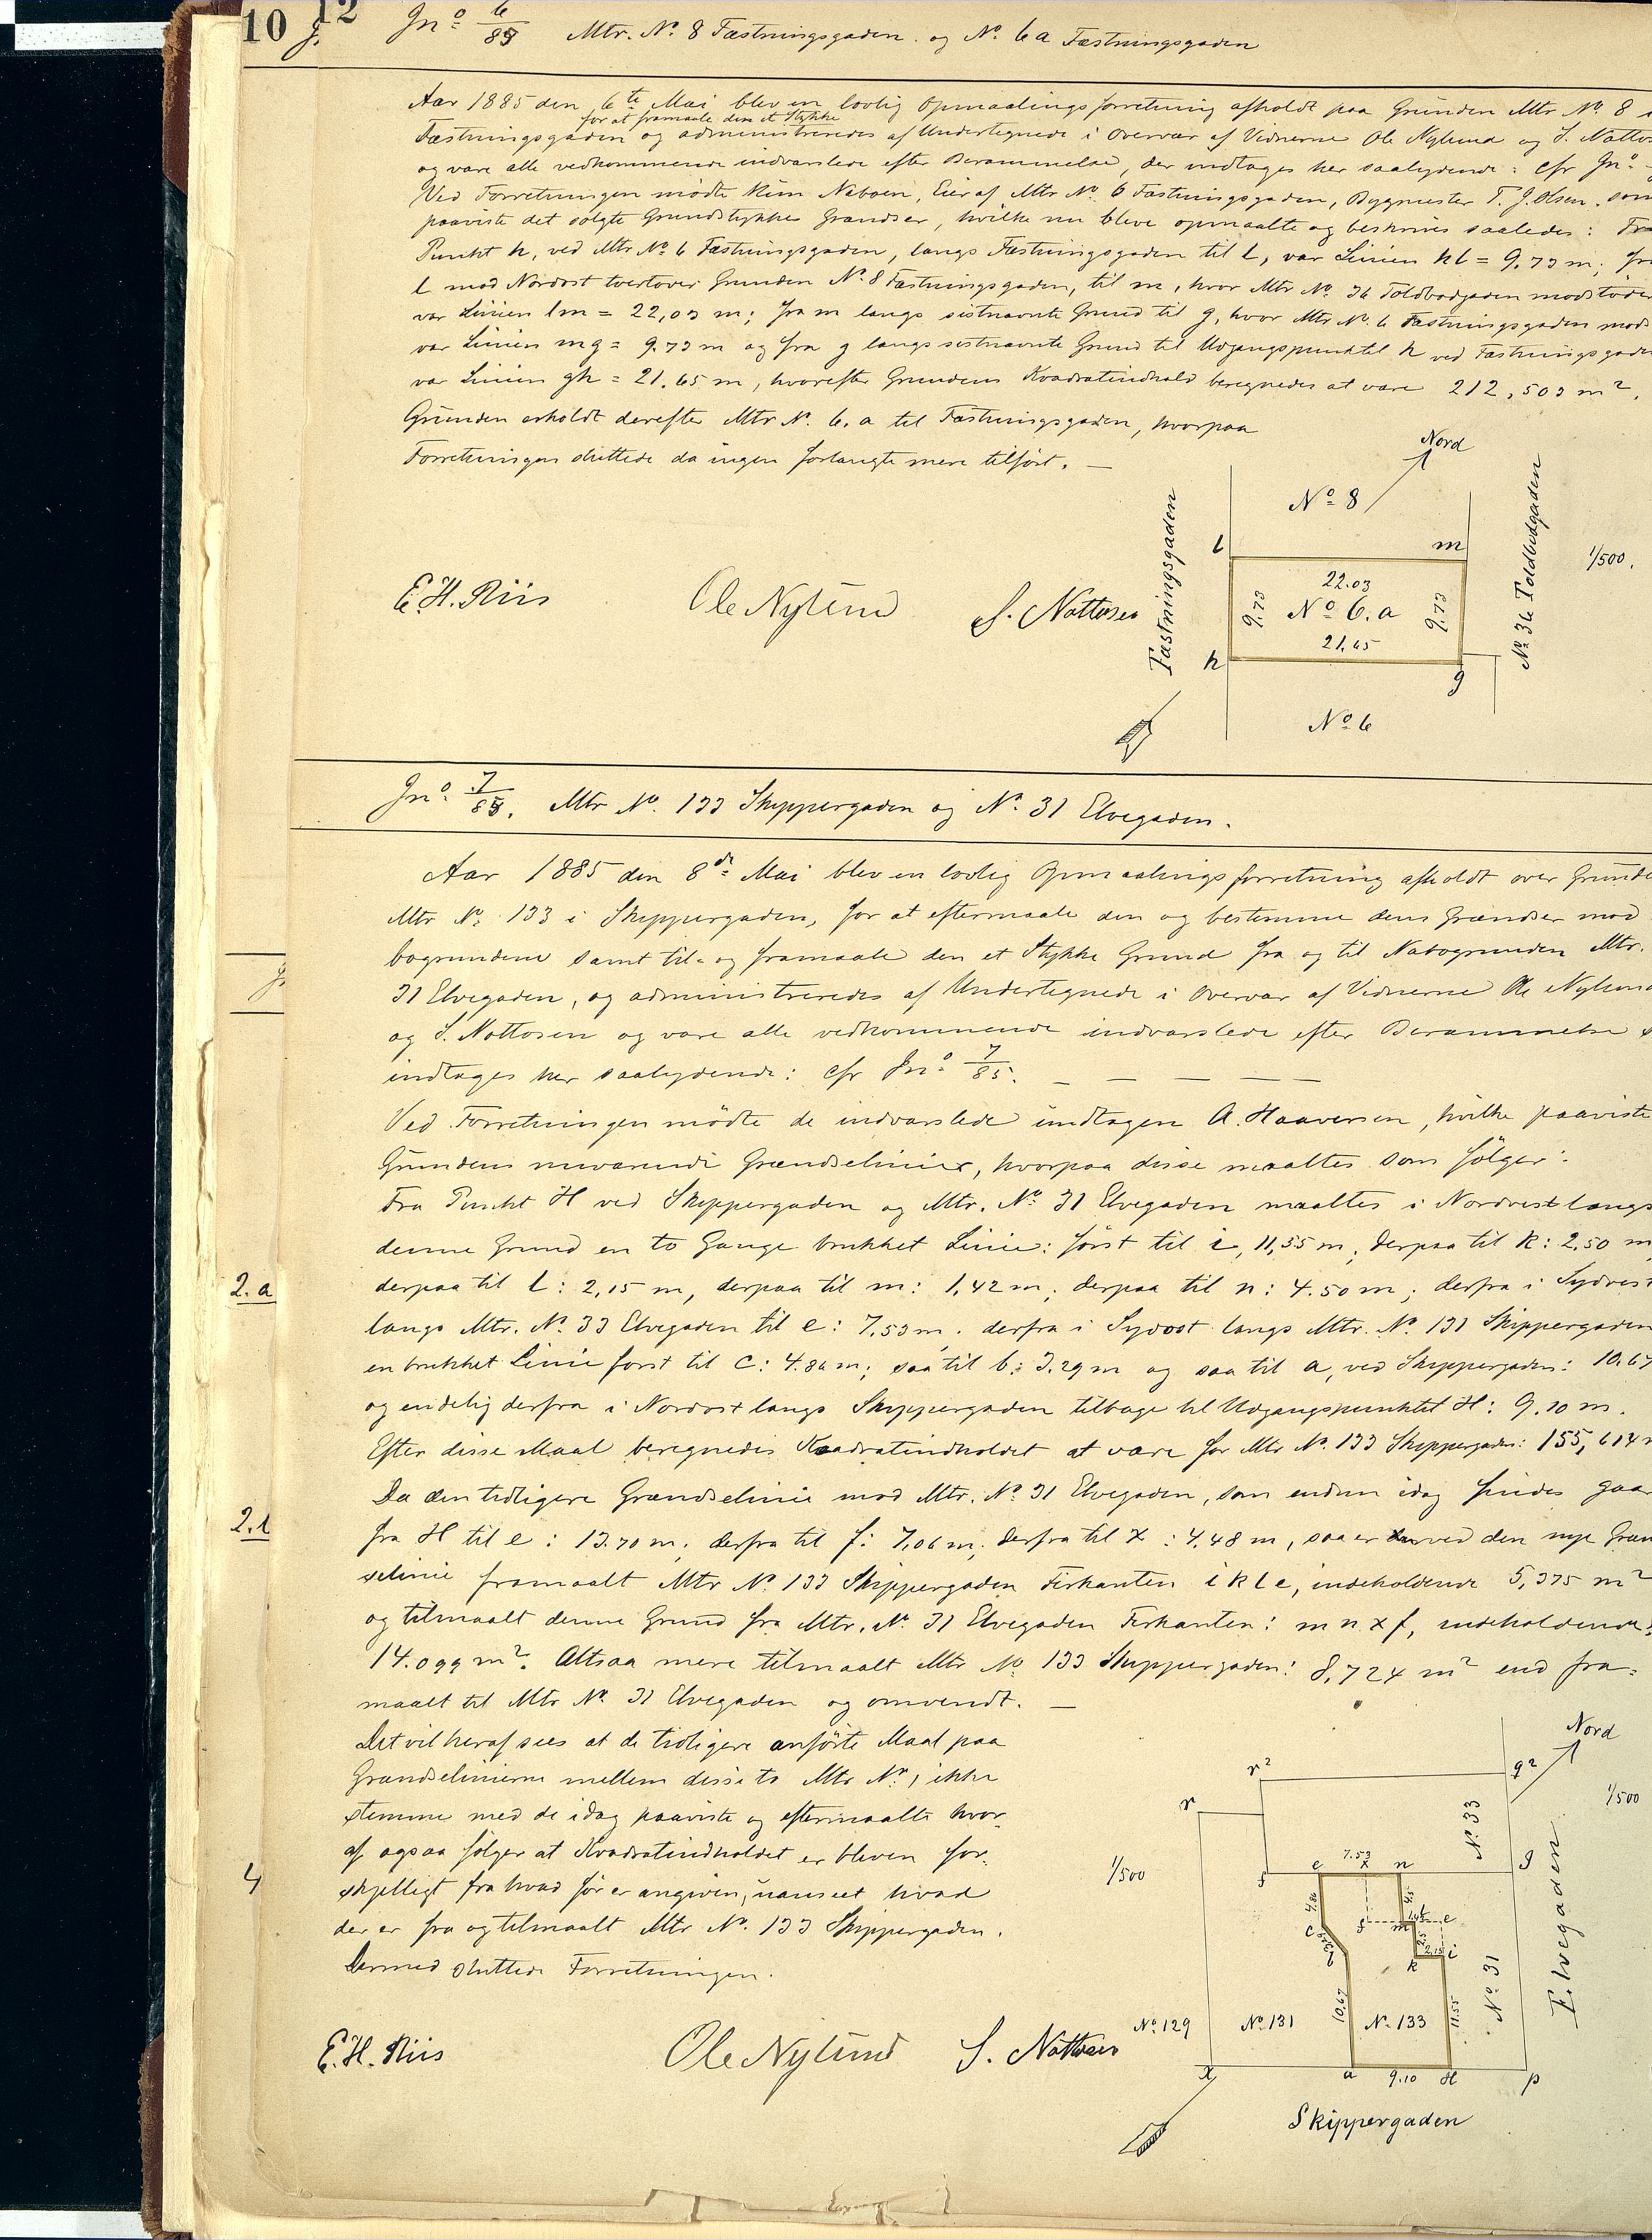 10 12
Jnº 6/85 Mtr. Nº 8 Fæstningsgaden og Nº 6a Fæstningsgaden
Aar 1885 den 6te Mai blev en lovlig Opmaalingsforretning afholdt paa Grunden Mtr Nº 8 i
for at framaale den et Stykke
Fæstningsgaden og administreredes af Undertegnede i Overvær af Vidnerne Ole Nylund og S. Nottos
og vare alle vedkommende indvarslede efter Berammelse, der indtages her saalydende: cfr Jnº
Ved Forretningen mødte kun Naboen, Eier af Mtr Nº 6 Fæstningsgaden, Bygmester T. J. Olsen, som
paaviste det solgte Grundstykkes Grændser, hvilke nu bleve opmaalte og beskrives saaledes: Fra
Punkt h, ved Mtr Nº 6 Fæstningsgaden, langs Fæstningsgaden til l, var Linien hl = 9.73 m; fra
l mod Nordost tvertover Grunden Nº 8 Fæstningsgaden, til m, hvor Mtr Nº 36 Toldbodgaden modstøder
var Linien lm = 22,03 m; fra m langs sistnævnte Grund til g, hvor Mtr Nº 6 Fæstningsgaden mod
var Linien mg = 9.73 m og fra g langs sistnævnte Grund til Udgangspunktet h ved Fæstningsgaden
var Linien gh = 21.65 m, hvorefter Grundens Kvadratindhold beregnedes at være 212,503 m².
Grunden erholdt derefter Mtr Nº 6.a til Fæstningsgaden, hvorpaa
Forretningen sluttede da ingen forlangte mere tilført. —
Nord
Nº 8
l m
Fæstningsgaden
Nº 36 Toldbodgaden
1/500.
22.03
9.73 Nº 6.a 9.73
21.65
h g
Nº 6
E. H. Riis Ole Nylund S. Nottosen
Jnº 7/85. Mtr Nº 133 Skippergaden og Nº 31 Elvegaden.
Aar 1885 den 8de Mai blev en lovlig Opmaalingsforretning afholdt over Grunde
Mtr Nº 133 i Skippergaden, for at eftermaale den og bestemme dens Grændser mod
bogrundene samt til- og framaale den et Stykke Grund fra og til Nabogrunden Mtr.
31 Elvegaden, og administreredes af Undertegnede i Overvær af Vidnerne Ole Nylund
og S. Nottosen og vare alle vedkommende indvarslede efter Berammelse
indtages her saalydende: cfr Jnº 7/85. — — — —
Ved Forretningen mødte de indvarslede undtagen A. Haaversen, hvilke paaviste
Grundens nuværende Grændselinier, hvorpaa disse maaltes som følger:
Fra Punkt H ved Skippergaden og Mtr. Nº 31 Elvegaden maaltes i Nordvest langs
denne Grund en to Gange brukket Linie: først til i, 11,55 m; derpaa til k: 2,50 m
2.a
derpaa til l: 2,15 m, derpaa til m: 1,42 m; derpaa til n: 4.50 m; derfra i Sydvest
langs Mtr. Nº 33 Elvegaden til e: 7,53 m; derfra i Sydost langs Mtr. Nº 131 Skippergaden
en brukket Linie først til c: 4.86 m; saa til b: 3.29 m og saa til a, ved Skippergaden: 10.67
og endelig derfra i Nordost langs Skippergaden tilbage til Udgangspunktet H: 9.10 m.
Efter disse Maal beregnedes Kvadratindholdet at være for Mtr Nº 133 Skippergaden: 155,614
Da den tidligere Grændselinie mod Mtr. Nº 31 Elvegaden, som endnu idag findes gaar
2.b
fra H til e: 13.70 m; derfra til f: 7,06 m; derfra til x: 4.48 m, saa er derved den nye Græn
selinie framaalt Mtr Nº 133 Skippergaden Firkanten i k l e, indeholdende 5,375 m²
og tilmaalt denne Grund fra Mtr. Nº 31 Elvegaden Firkanten: m n x f, indeholdende:
14.099 m². Altsaa mere tilmaalt Mtr Nº 133 Skippergaden: 8,724 m² end fra-
maalt til Mtr Nº 31 Elvegaden og omvendt. —
Det vil heraf sees at de tidligere anførte Maal paa
Grændselinierne mellem disse to Mtr Nº, ikke
stemme med de idag paaviste og eftermaalte hvor-
af ogsaa følger at Kvadratindholdet er bleven for-
4
skjelligt fra hvad før er angiven, uanseet hvad
der er fra og tilmaalt Mtr Nº 133 Skippergaden.
Dermed sluttede Forretningen.
Nord
r² q²
r
1/500
1/500
Nº 33
7.53
s e x n
4.86 4.5
c f m l e
3.29 2.15
b k i
10.67 11.55
Nº 129 Nº 131 Nº 133 Nº 31
Elvegaden
a 9.10 H p
Skippergaden
E. H. Riis Ole Nylund S. Nottosen